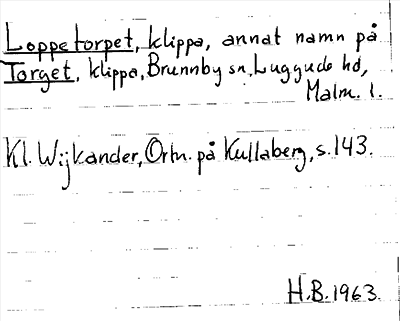 Loppetorpet, klippa, annat namn på
Torget, klippa, Brunnby sn, Luggude hd,
Malm. l.
Kl. Wijkander, Ortn. på Kullaberg, s. 143.
H.B. 1963.